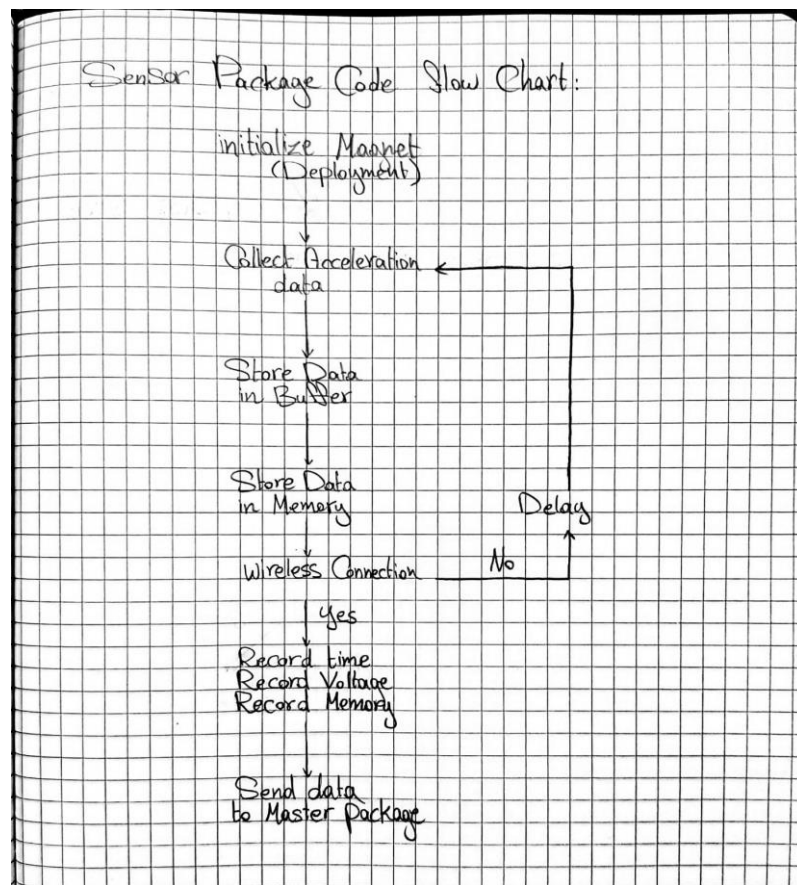 Sensor Package Code Flow Chart:
initialize Magnet
(Deployment)
Collect Acceleration
data
Store Data
in Buffer
Store Data
in Memory
Delay
Wireless Connection
No
Yes
Record time
Record Voltage
Record Memory
Send data
to Master Package